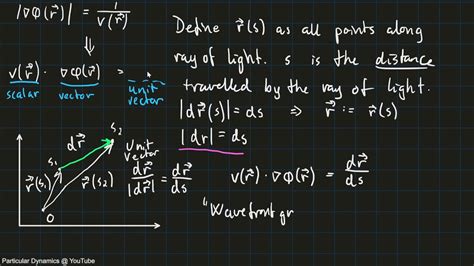 |∇φ(r⃗)| = 1/v(r⃗)
⇓
v(r⃗) · ∇φ(r⃗) =
scalar vector unit vector
Define r⃗(s) as all points along
ray of light. s is the distance
travelled by the ray of light.
|dr⃗(s)| = ds ⇒ r⃗ := r⃗(s)
|dr| = ds
dr⃗ s₂
s₁
r⃗(s₁) r⃗(s₂)
0
Unit
vector
dr⃗/|dr⃗| = dr⃗/ds
v(r⃗) · ∇φ(r⃗) = dr⃗/ds
"Wavefront gr
Particular Dynamics @ YouTube